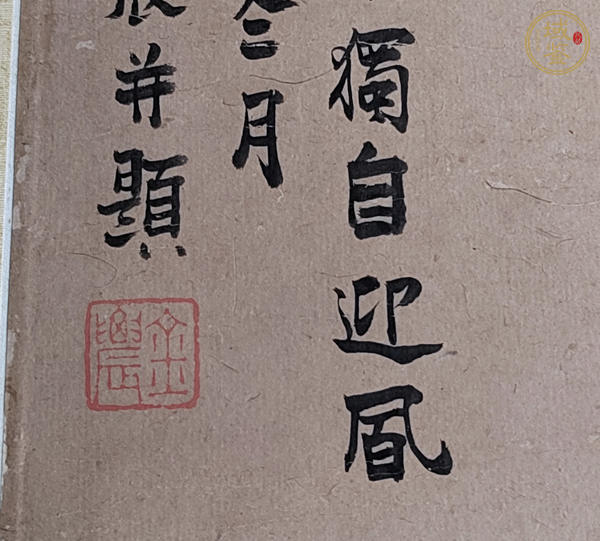 獨自迎風
三月
并題
金農